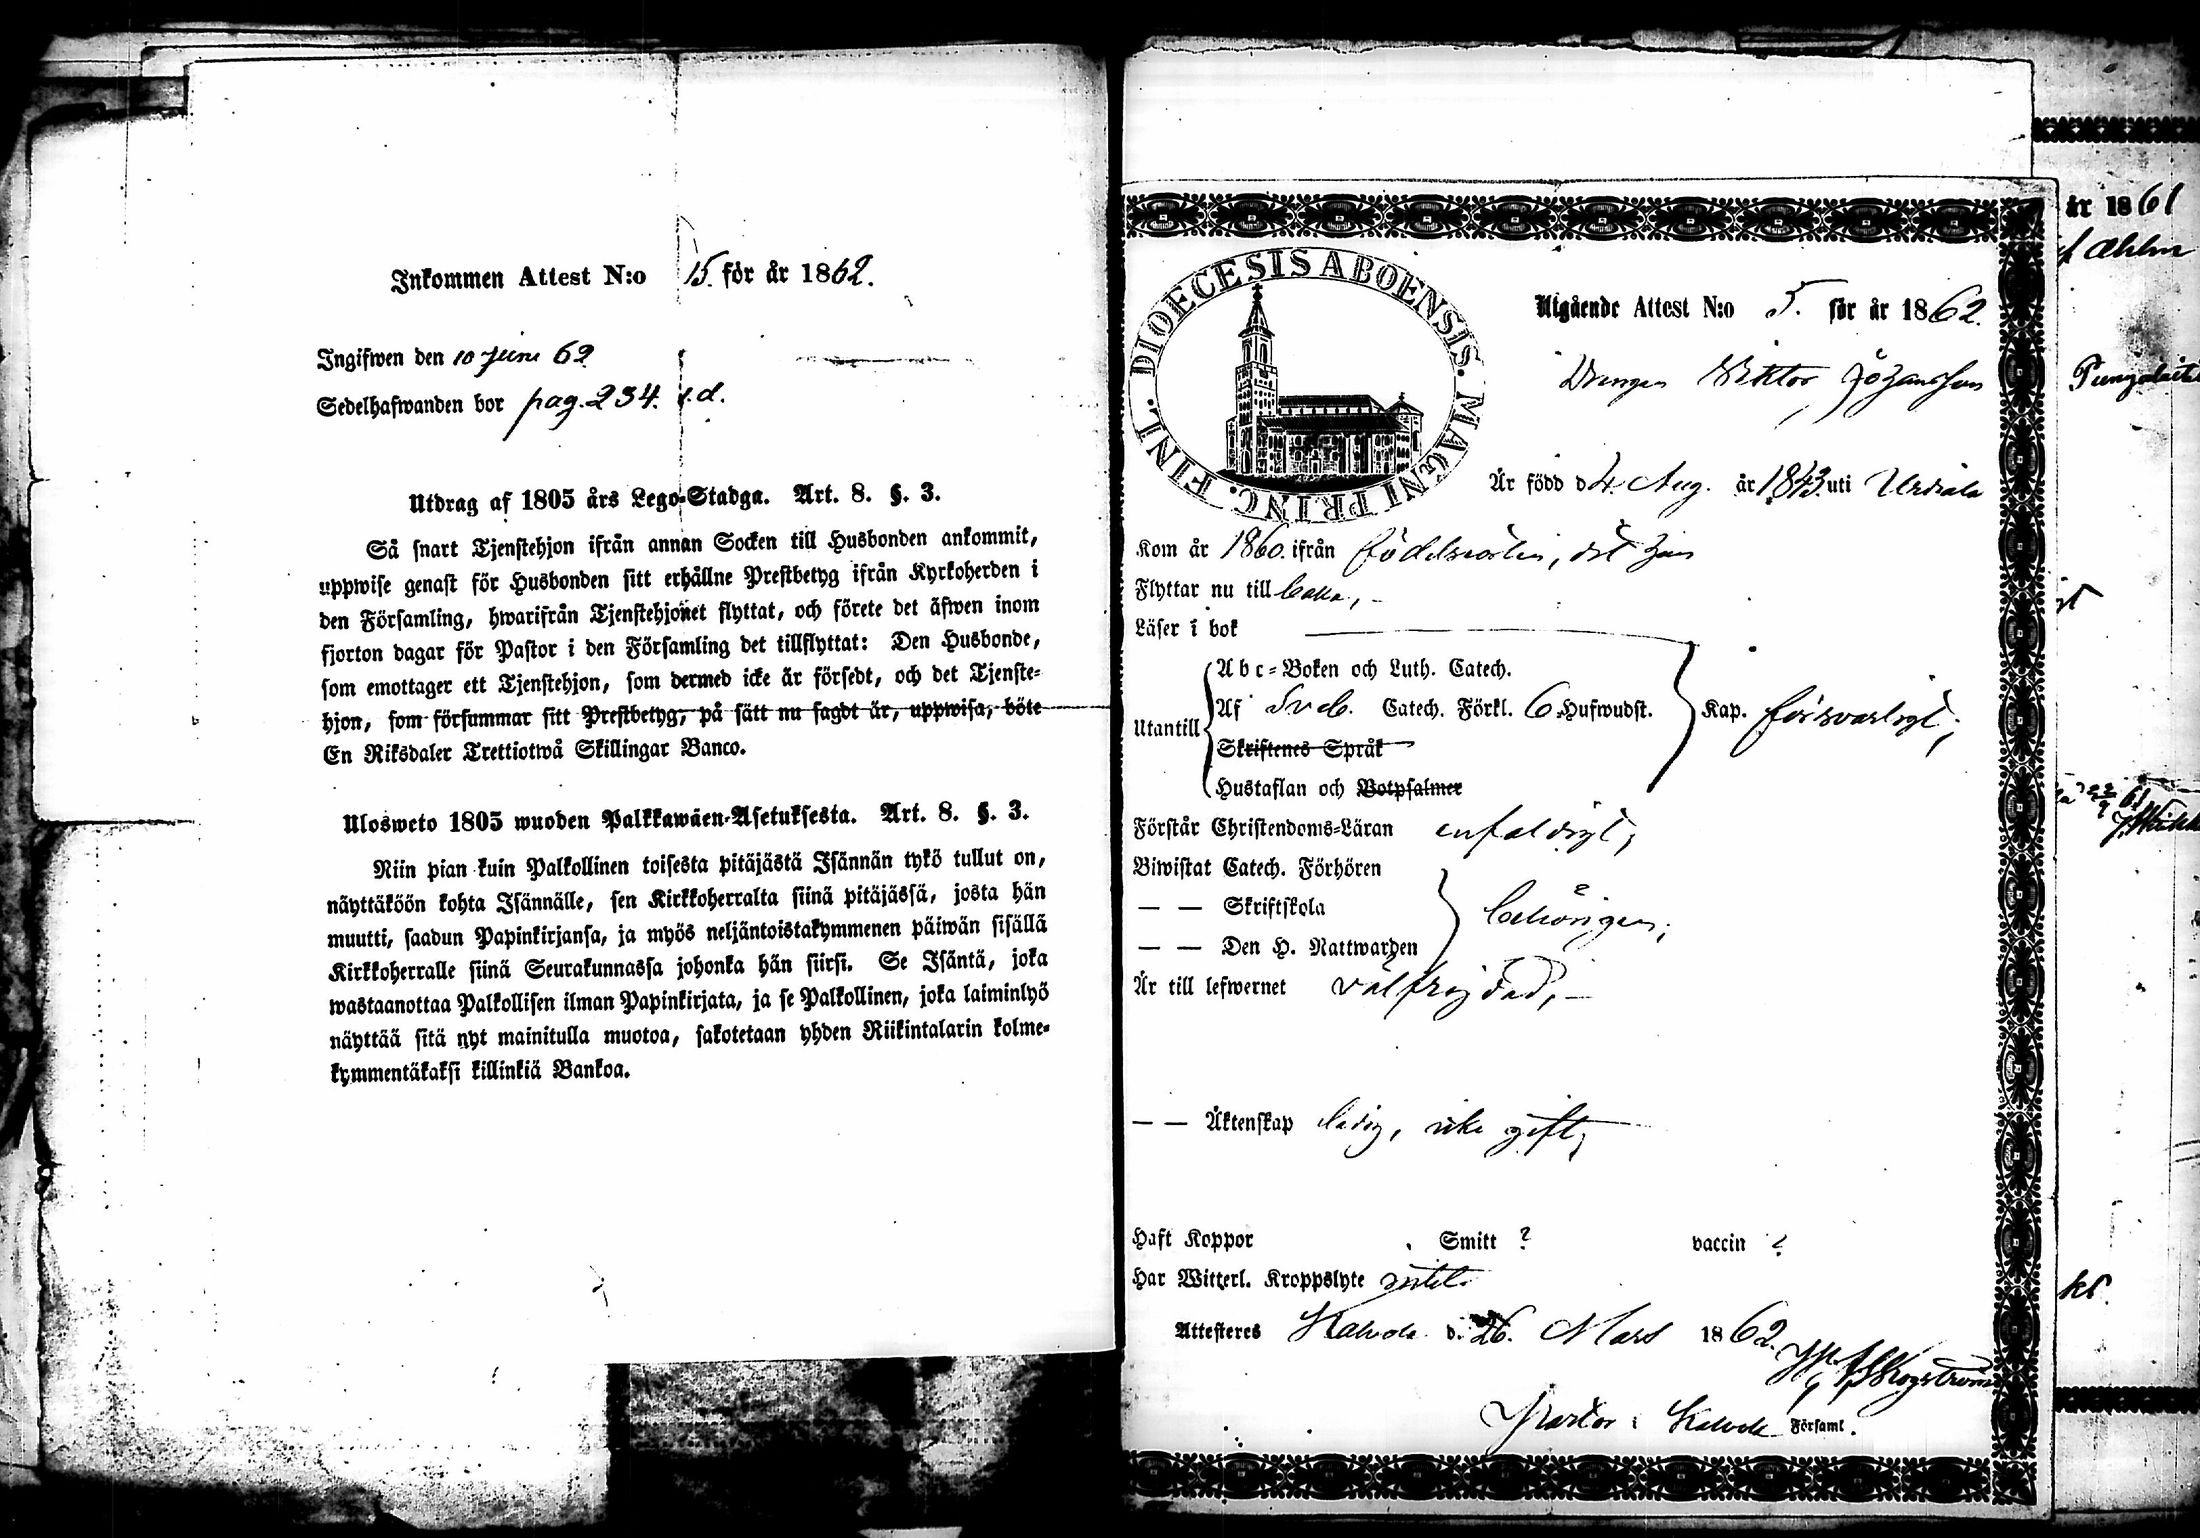 Inkommen Attest N:o 15. för år 1862.
Ingifwen den 10 Juni 62.
Sedelhafwanden bor pag. 234. s.d.
Utdrag af 1805 års Lego-Stadga. Art. 8. §. 3.
Så snart Tjenstehjon ifrån annan Socken till Husbonden ankommit,
uppwise genast för Husbonden sitt erhållne Prestbetyg ifrån Kyrkoherden i
den Församling, hwarifrån Tjenstehjonet flyttat, och förete det äfwen inom
fjorton dagar för Pastor i den Församling det tillflyttat: Den Husbonde,
som emottager ett Tjenstehjon, som dermed icke är försedt, och det Tjenste-
hjon, som försummar sitt Prestbetyg, på sätt nu sagdt är, uppwisa, böte
En Riksdaler Trettiotwå Skillingar Banco.
Ulosweto 1805 wuoden Palkkawäen-Asetuksesta. Art. 8. §. 3.
Niin pian kuin Palkollinen toisesta pitäjästä Isännän tykö tullut on,
näyttäköön kohta Isännälle, sen Kirkkoherralta siinä pitäjässä, josta hän
muutti, saadun Papinkirjansa, ja myös neljäntoistakymmenen päiwän sisällä
Kirkkoherralle siinä Seurakunnassa johonka hän siirsi. Se Isäntä, joka
wastaanottaa Palkollisen ilman Papinkirjata, ja se Palkollinen, joka laiminlyö
näyttää sitä nyt mainitulla muotoa, sakotetaan yhden Riikintalarin kolme-
kymmentäkaksi killinkiä Bankoa.
DIOECESIS ABOENSIS. MAGNI PRINC. FINL.
Utgående Attest N:o 5. för år 1862.
Drengen Viktor Johansson
Är född d. 4. Aug. år 1843. uti Urdiala
Kom år 1860. ifrån födelseorten,
Flyttar nu till
Läser i bok
Utantill
Abc-Boken och Luth. Catech.
Af Sveb. Catech. Förkl. 6 Hufwudst.
Skriftenes Språk
Hustaflan och Botpsalmer
Kap. försvarligt;
Förstår Christendoms-Läran enfaldigt;
Biwistat Catech. Förhören
— — Skriftskola
— — Den H. Nattwarden
behörigen;
Är till lefwernet välfrejdad,
— — Äktenskap ledig, icke gift;
Haft Koppor Smitt ? vaccin ?
Har Witterl. Kroppslyte
Attesteres Kalvola d. 26. Mars 1862.
Pastor i Kalvola Församl.
år 1861